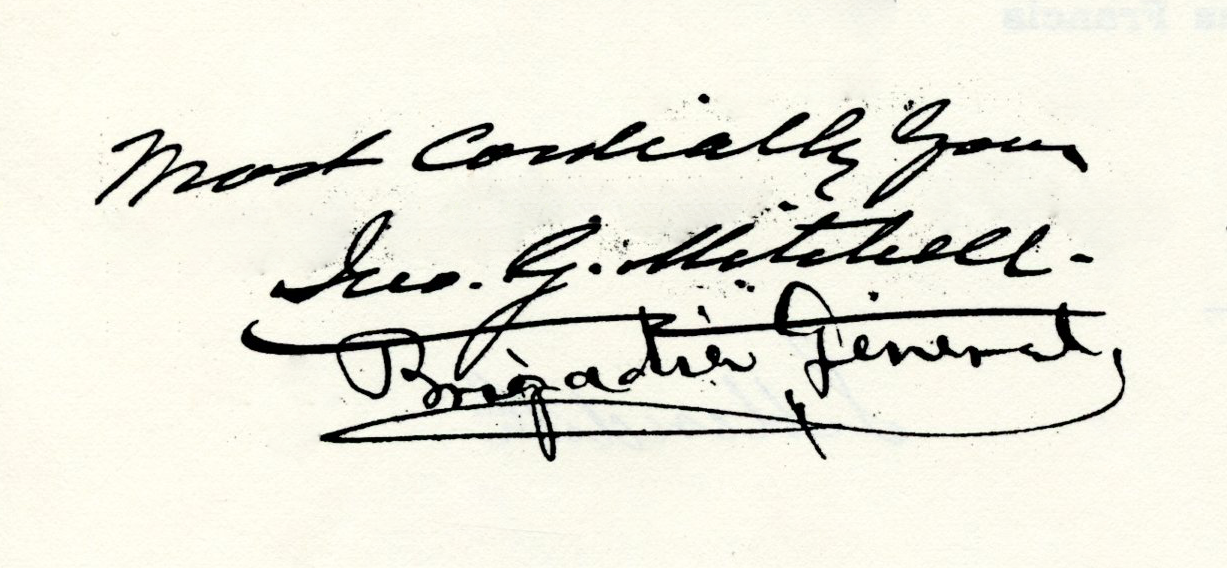 Most Cordially Yours
Jno. G. Mitchell.
Brigadier General,